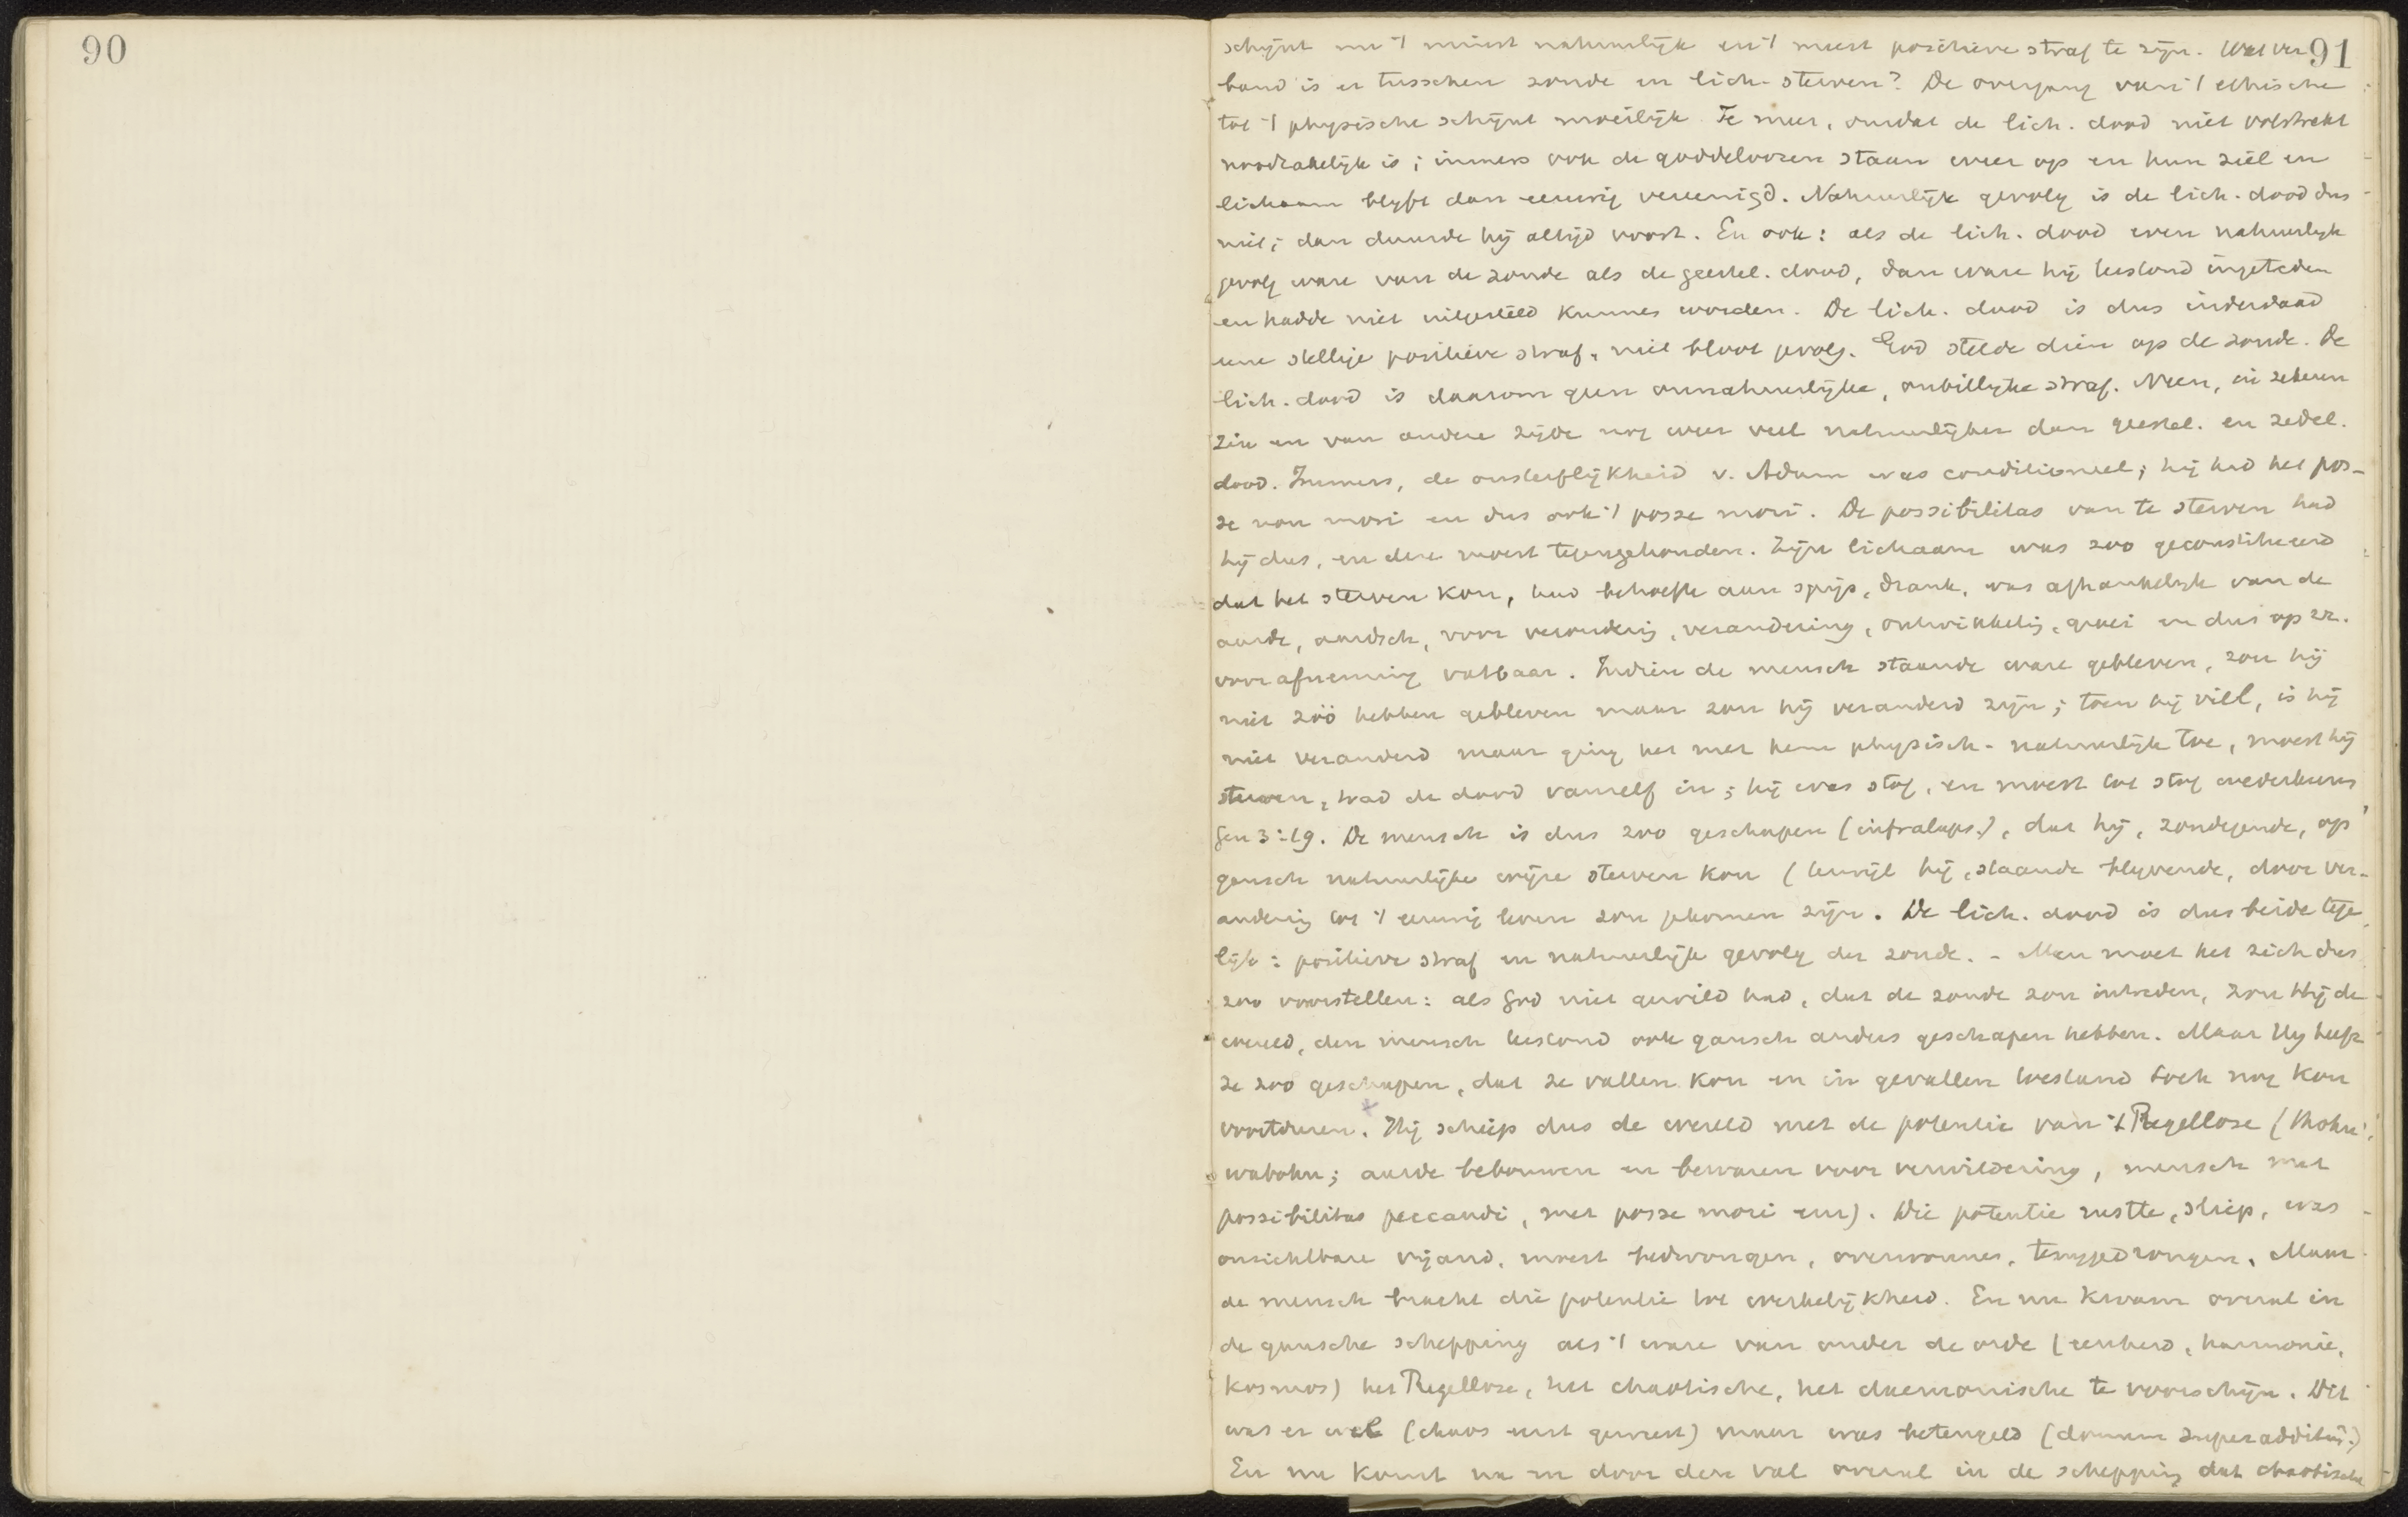 90
91
schijnt nu 't minst natuurlijk en 't meest positieve straf te zijn. Wat ver
band is er tusschen zonde en lich. sterven? De overgang van 't ethische
tot 't physische schijnt moeilijk. Te meer, omdat de lich. dood niet volstrekt
noodzakelijk is; immers ook de goddeloozen staan weer op en hun ziel en
lichaam blijft dan eeuwig vereenigd. Natuurlijk gevolg is de lich. dood dus
niet; dan duurde hij altijd voort. En ook: als de lich. dood even natuurlijk
gevolg ware van de zonde als de geestel. dood, dan ware hij terstond ingetreden
en hadde niet uitgesteld kunnen worden. De lich. dood is dus inderdaad
eene stellige positieve straf, niet bloot gevolg. God stelde dien op de zonde. De
lich. dood is daarom geen onnatuurlijke, onbillijke straf. Neen, in zekeren
zin en van andere zijde nog weer veel natuurlijker dan geestel. en zedel.
dood. Immers, de onsterflijkheid v. Adam was conditioneel; hij had het pos-
se non mori en dus ook 't posse mori. De possibilitas van te sterven had
hij dus, en deze moest tegengehouden. Zijn lichaam was zoo geconstitueerd
dat het sterven kon, had behoefte aan spijs, drank, was afhankelijk van de
aarde, aardsch, voor verandering, ontwikkeling, groei en dus op zz.
voor afneming vatbaar. Indien de mensch staande ware gebleven, zou hij
niet zóó hebben gebleven maar zou hij veranderd zijn; toen hij viel, is hij
niet veranderd maar ging het met hem physisch-natuurlijk toe, moest hij
sterven, trad de dood vanzelf in; hij was stof, en moest tot stof wederkeeren
Gen 3:19. De mensch is dus zoo geschapen (infralaps.), dat hij, zondigende, op
gansch natuurlijke wijze sterven kon (terwijl hij, staande blijvende, door ver-
andering tot 't eeuwig leven zou gekomen zijn. De lich. dood is dus beide tege
lijk: positieve straf en natuurlijk gevolg der zonde. - Men moet het zich dus
zoo voorstellen: als God niet gewild had, dat de zonde zou intreden, zou Hij de
wereld, den mensch terstond ook gansch anders geschapen hebben. Maar Hij heeft
ze zoo geschapen, dat ze vallen kon en in gevallen toestand toch nog kon
voortduren. Hij schiep dus de wereld met de potentie van 't Regellose (thohu
wabohu; aarde bebouwen en bewaren voor verwildering, mensch met
possibilitas peccandi, met posse mori enz). Die potentie rustte, sliep, was
onzichtbare vijand, moest bedwongen, overwonnen, teruggedrongen. Maar
de mensch bracht die potentie tot werkelijkheid. En nu kwam overal in
de gansche schepping als 't ware van onder de orde (eenheid, harmonie,
kosmos) het Regellose, het chaotische, het daemonische te voorschijn. Dit
was er wel (chaos eerst geweest) maar was beteugeld (donum superadditum.)
En nu komt na en door den val overal in de schepping dat chaotische